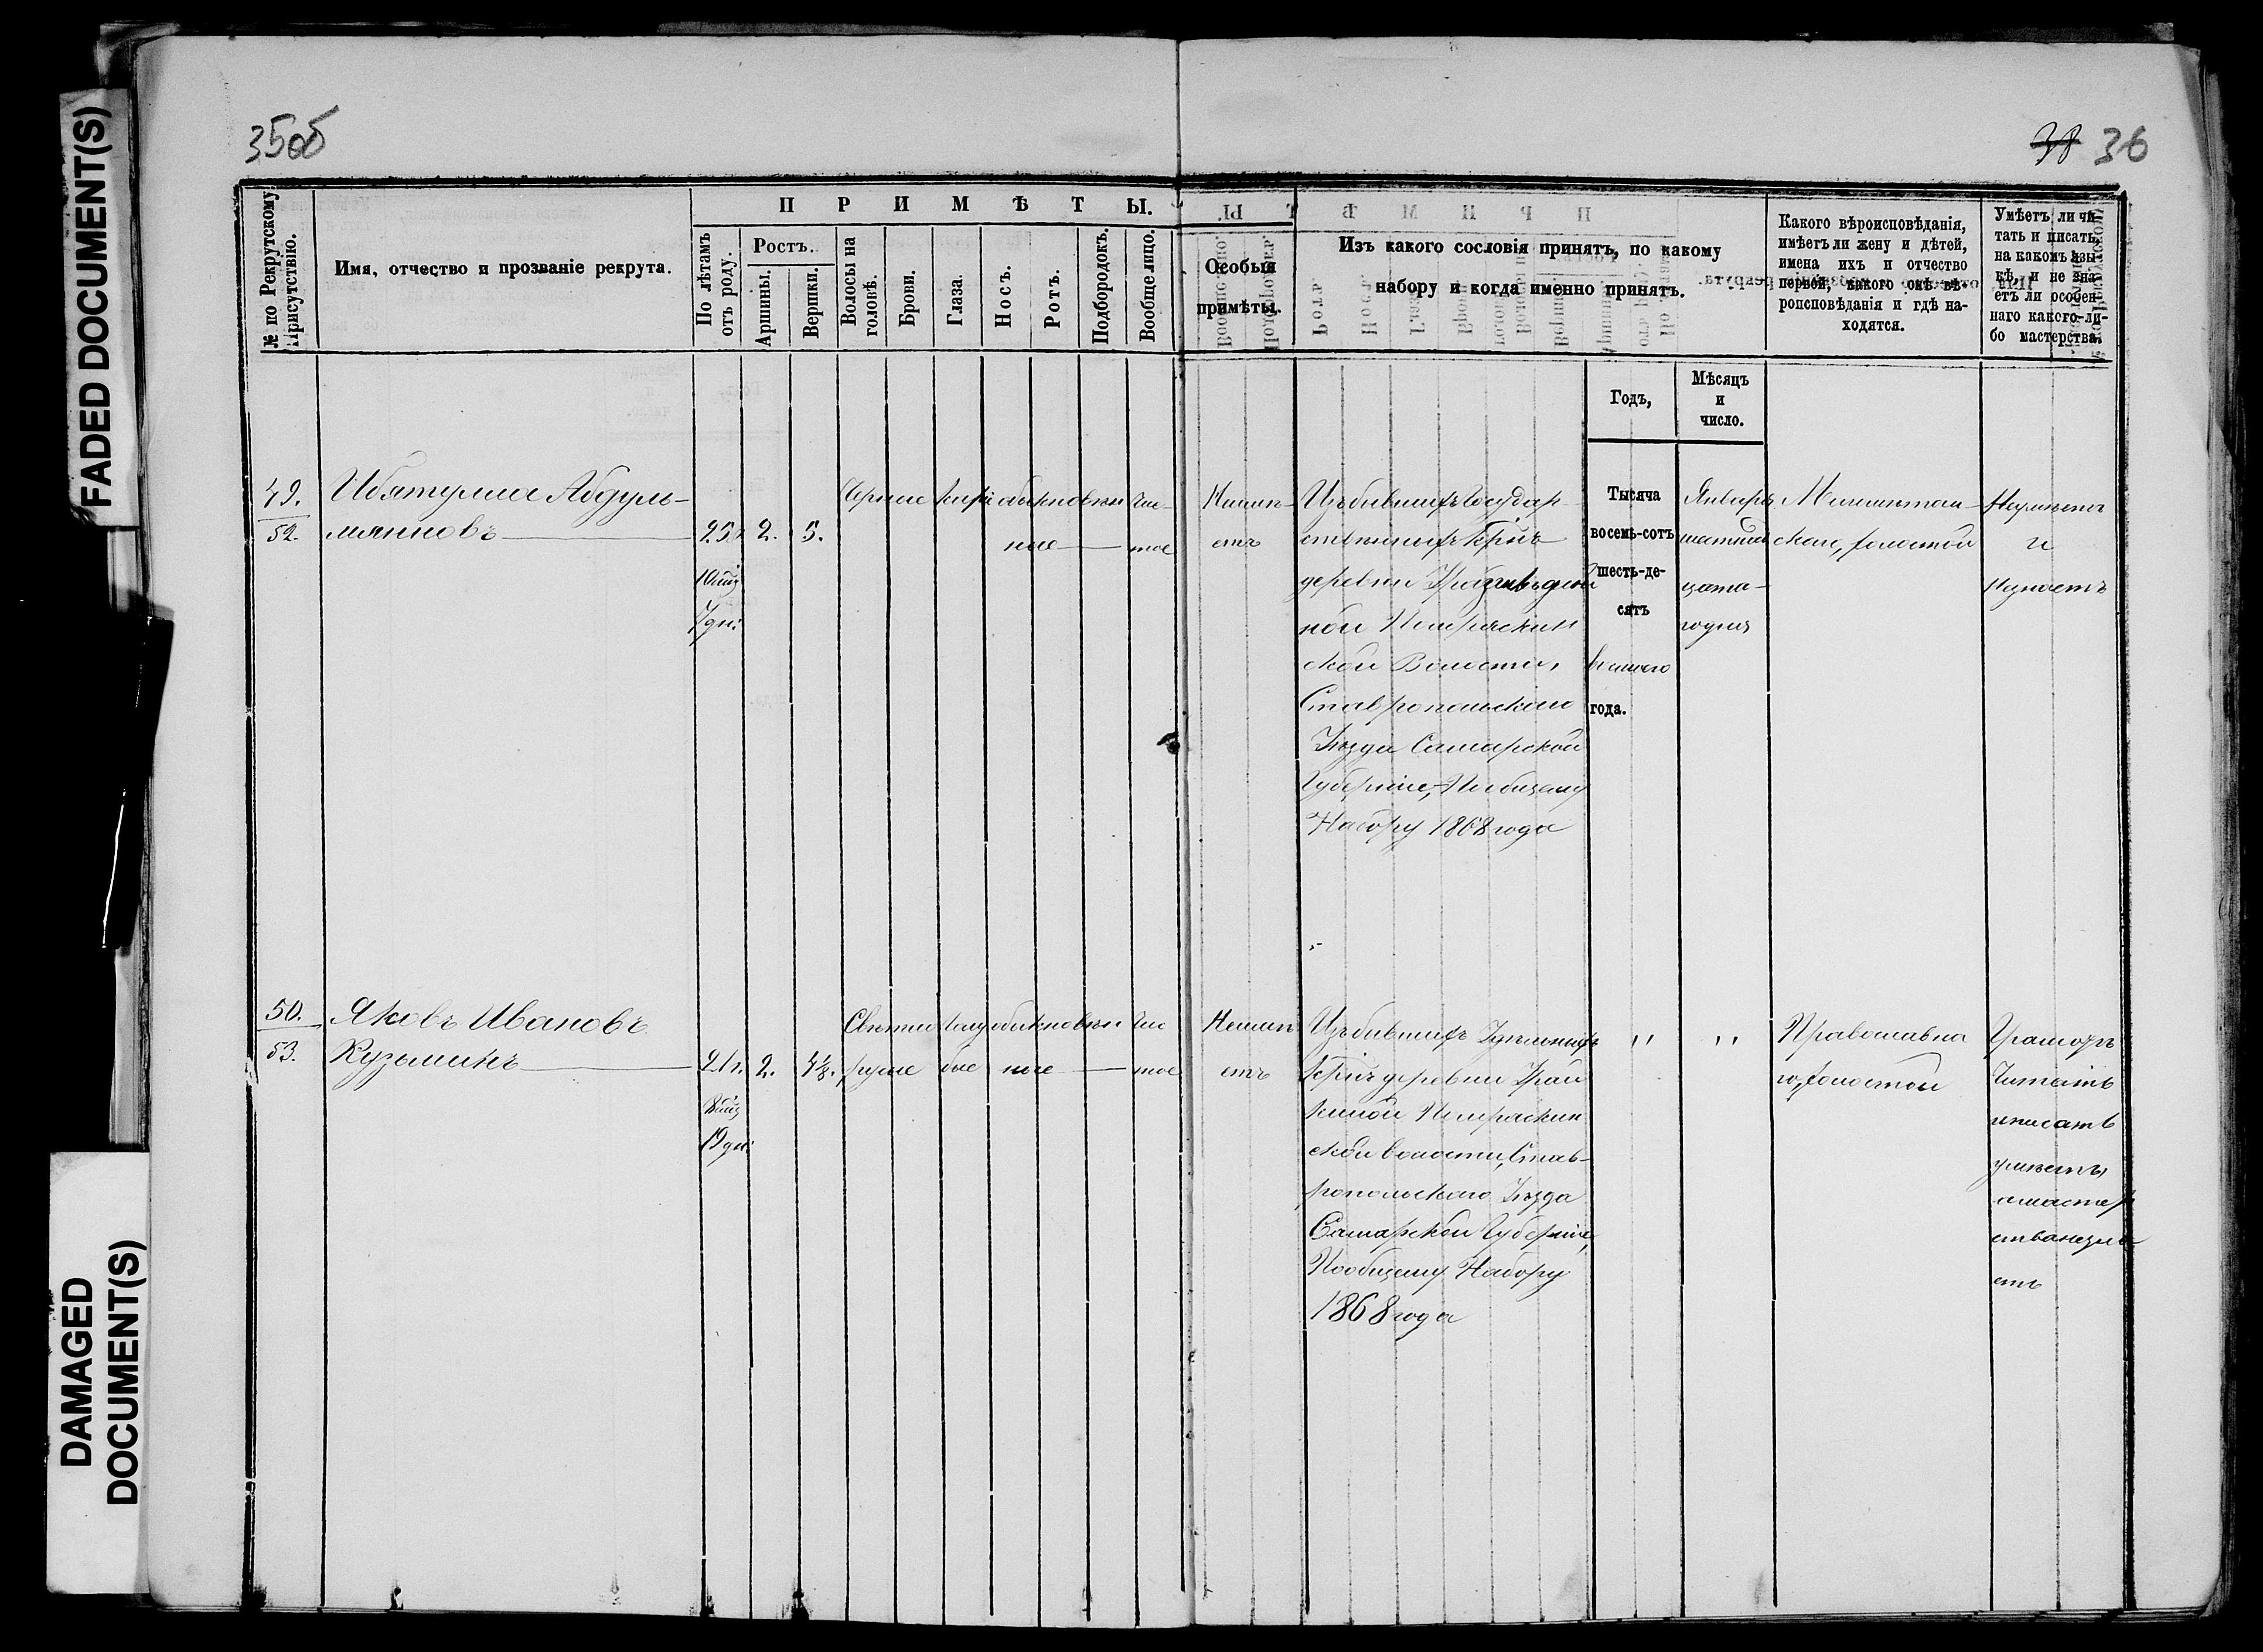 FADED DOCUMENT(S)
DAMAGED
DOCUMENT(S)
35об
38 36
№ по Рекрутскому
Присутствію.
Имя, отчество и прозваніе рекрута.
ПРИМѢТЫ.
По лѣтамъ
отъ роду.
Ростъ.
Аршины.
Вершки.
Волосы на
головѣ.
Брови.
Глаза.
Носъ.
Ротъ.
Подбородокъ.
Вообще лицо.
Особыя
примѣты.
Изъ какого сословія принятъ, по какому
набору и когда именно принятъ.
Какого вѣроисповѣданія,
имѣетъ ли жену и дѣтей,
имена ихъ и отчество
первой, какого онѣ вѣ-
роисповѣданія и гдѣ на-
ходятся.
Умѣетъ ли чи-
тать и писать,
на какомъ язы-
кѣ, и не зна-
етъ ли особен-
наго какого-ли-
бо мастерства.
Годъ,
Мѣсяцъ
и
число.
49.
52.
Ибятулла Абдуль-
мянновъ
25
7 дн.
2.
5.
Черные
Карі
обыкновен
ное
чис-
тое
Неимѣ-
етъ
Изъ бывшихъ Государ-
ственныхъ Кр-нъ
деревни
ной
ской Волости,
Ставропольскаго
Уѣзда Самарской
Губерніи, По общему
Набору 1868 года
Тысяча
восемь-сотъ
шесть-де-
сятъ
восьмого
года.
Января
шестнад
цата-
го дня
Магометан-
скаго, холостой
Неумѣетъ
и
незнаетъ
50.
53.
Яковъ Ивановъ
Кузьминъ
21 г.
19 дн.
2.
4⅛.
Свѣтло
русые
Голу
бые
обыкновен
ное
Чис
тое
Неимѣ
етъ
Изъ бывшихъ Удѣльныхъ
Кр-нъ деревни
ской волости, Став-
ропольскаго Уѣзда
Самарской Губерніи,
По общему Набору
1868 года
" "
Православна
го, холостой
Грамотѣ
Читать
и писать
умѣетъ,
а мастер
ства незна-
етъ